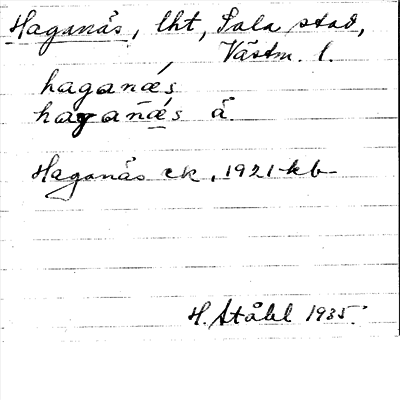 Haganäs, lht, Sala stad,
Västm. l.
haganǽs
haganæs å
Haganäs ek, 1921 kb
H. Ståhl 1935.